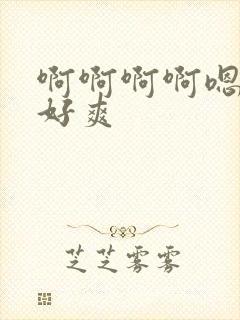 啊啊啊啊嗯
好爽
芝芝雾雾